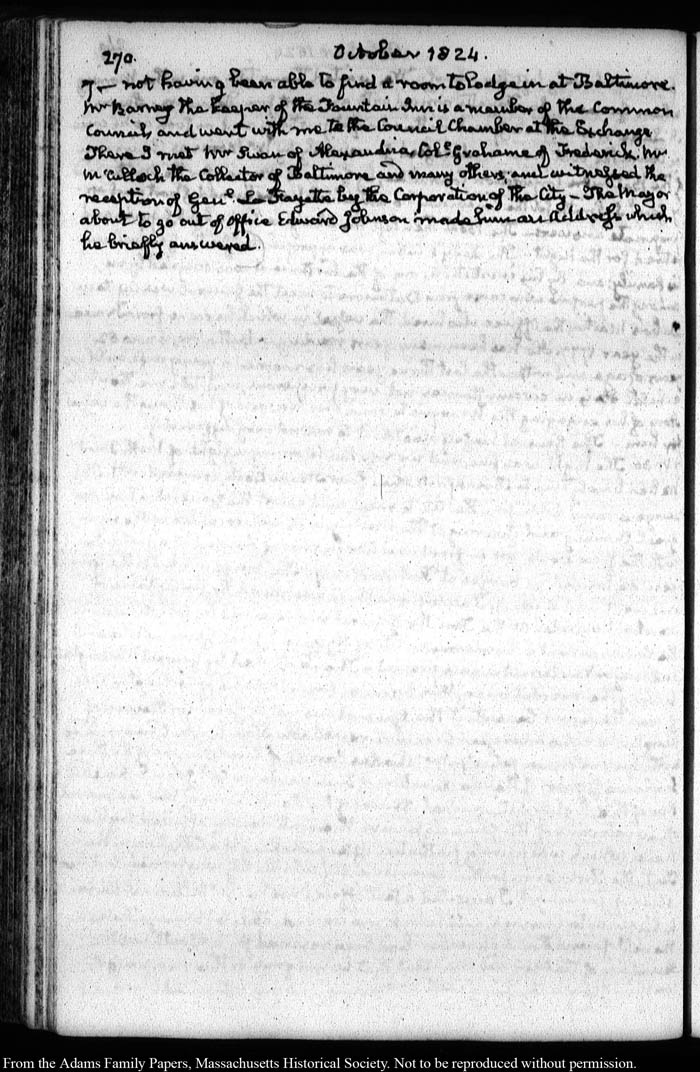 270.
October 1824.
7— not having been able to find a room to lodge in at Baltimore.
Mr Barney the keeper of the Fountain Inn is a member of the Common
Council, and went with me to the Council Chamber at the Exchange
There I met Mr Swan of Alexandria Coll. Grahame of Frederick, Mr
McCulloch the Collector of Baltimore and many others, and witnessed the
reception of Genl. La Fayette by the Corporation of the City — The Mayor
about to go out of office Edward Johnson made him an Address which
he briefly answered.
From the Adams Family Papers, Massachusetts Historical Society. Not to be reproduced without permission.